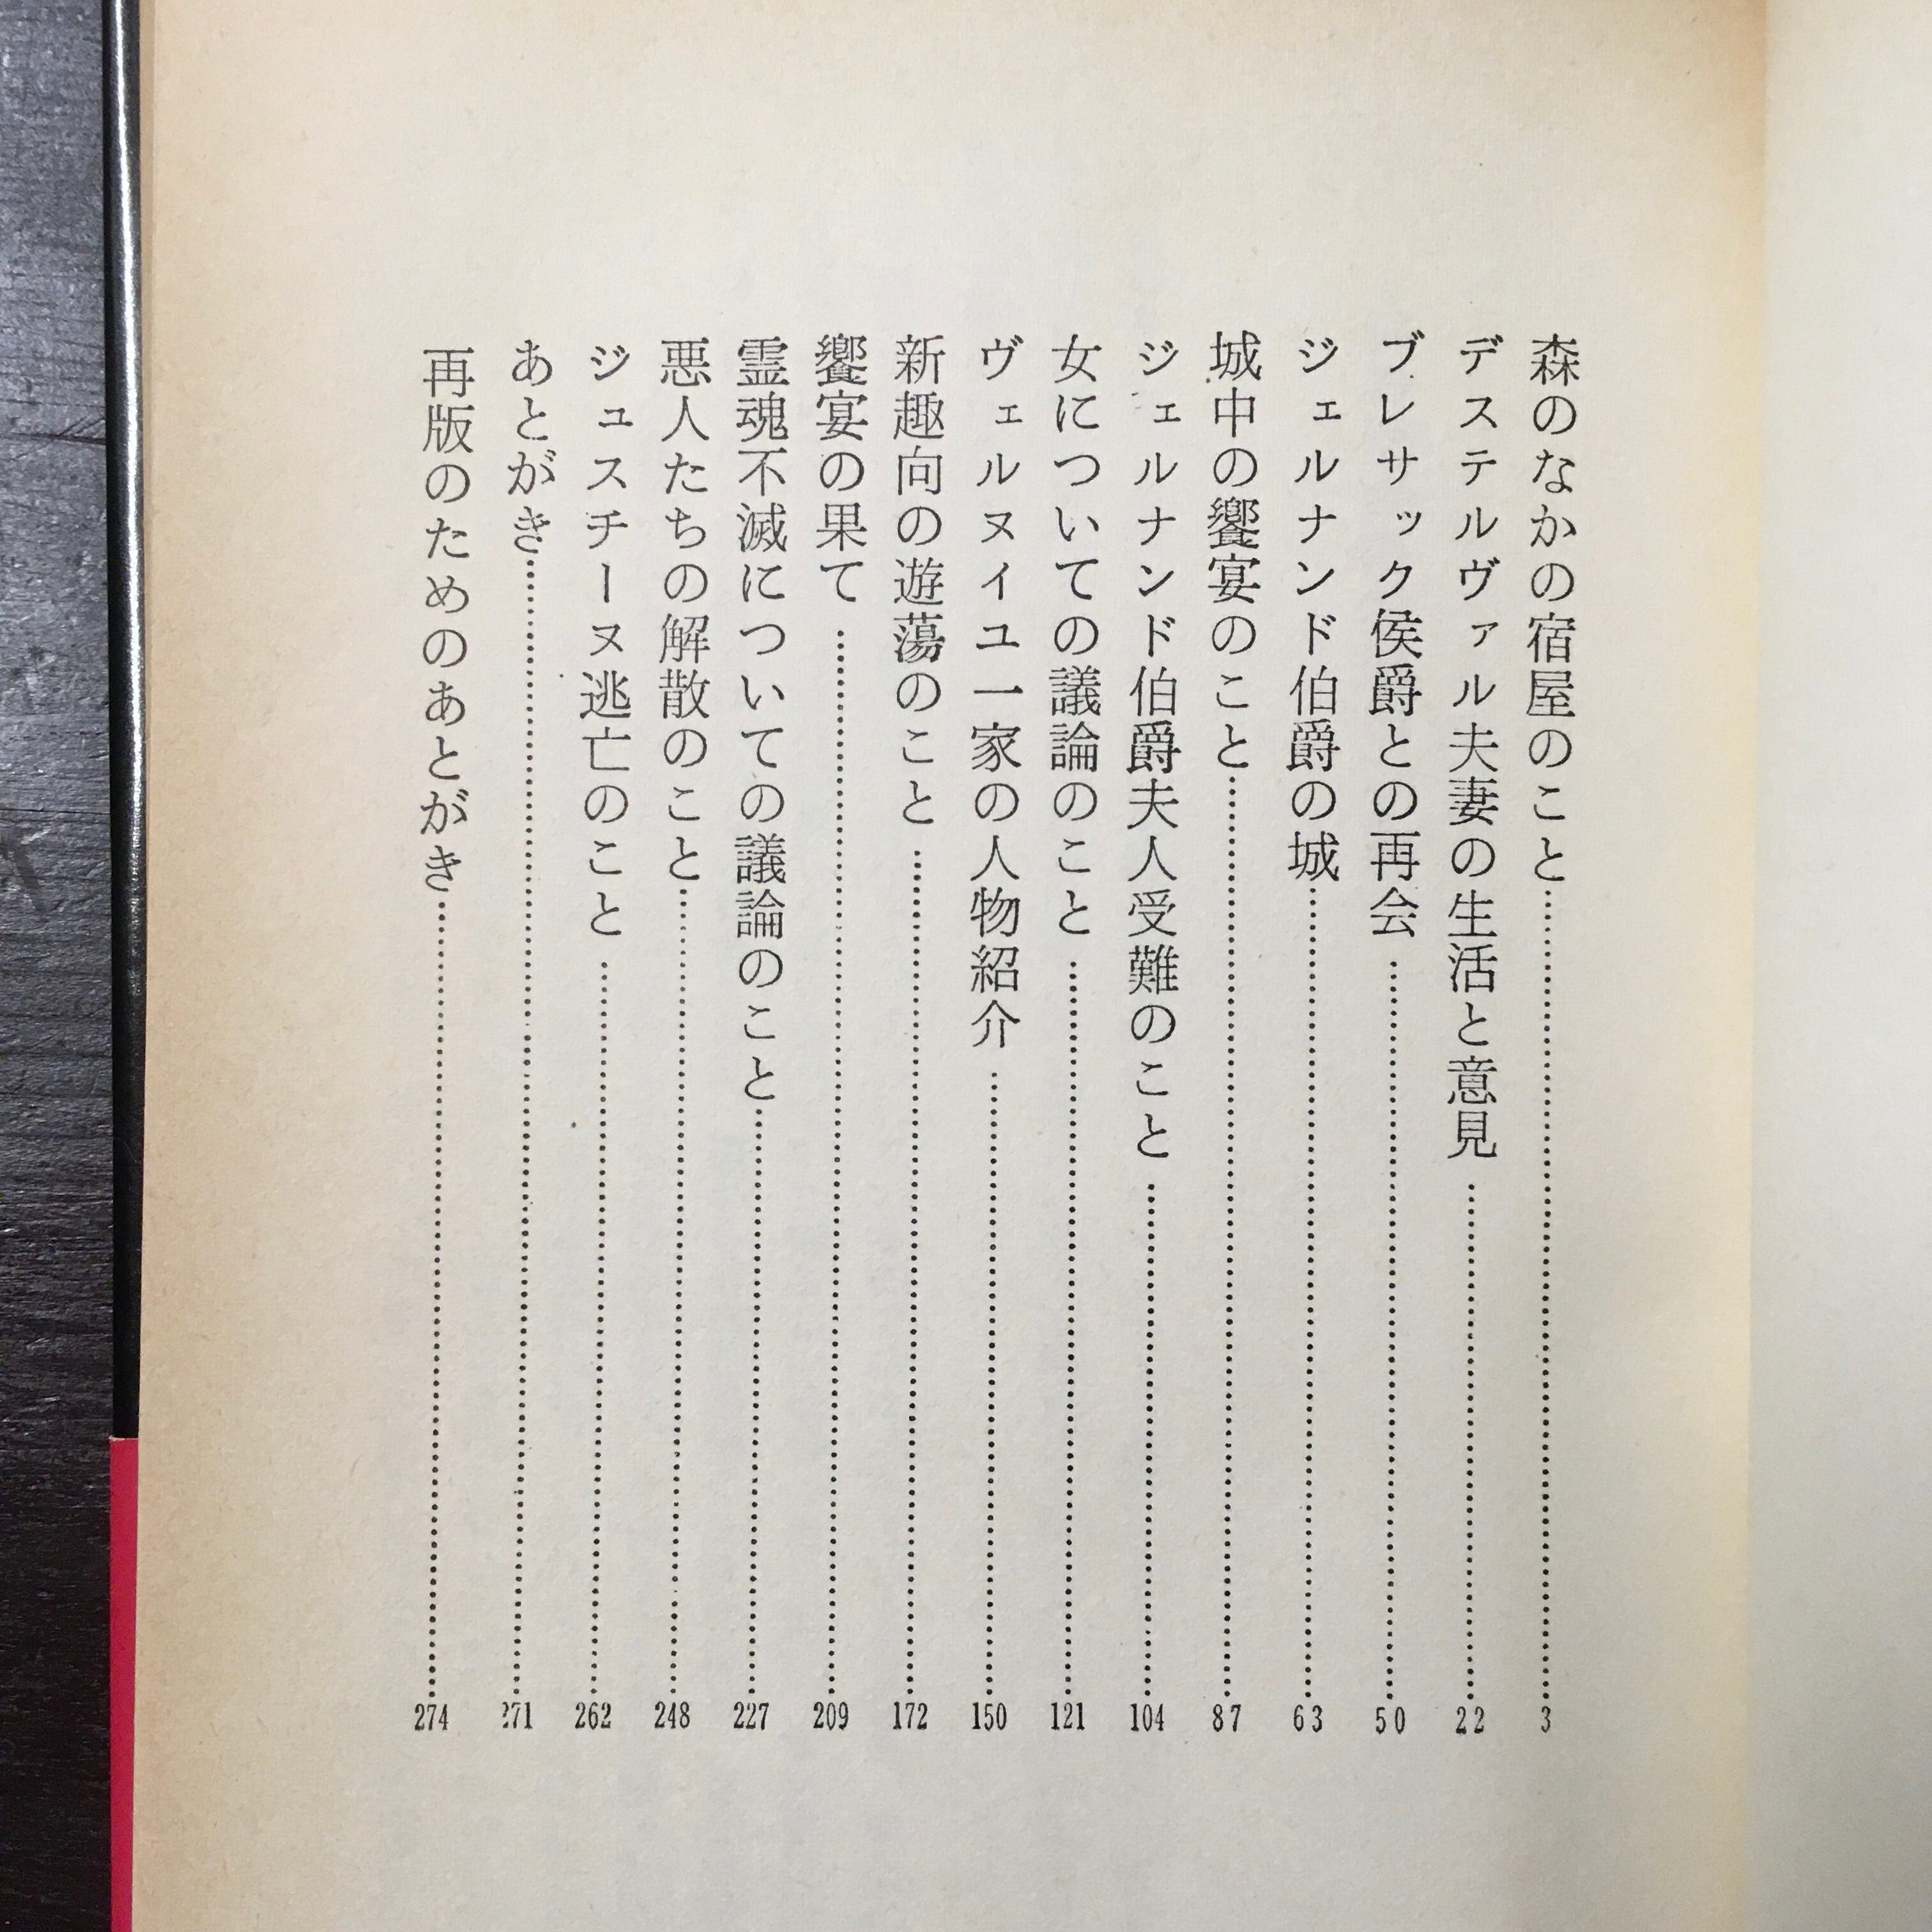 森のなかの宿屋のこと……3
デステルヴァル夫妻の生活と意見……22
ブレサック侯爵との再会……50
ジェルナンド伯爵の城……63
城中の饗宴のこと……87
ジェルナンド伯爵夫人受難のこと……104
女についての議論のこと……121
ヴェルヌイユ一家の人物紹介……150
新趣向の遊蕩のこと……172
饗宴の果て……209
霊魂不滅についての議論のこと……227
悪人たちの解散のこと……248
ジュスチーヌ逃亡のこと……262
あとがき……271
再版のためのあとがき……274